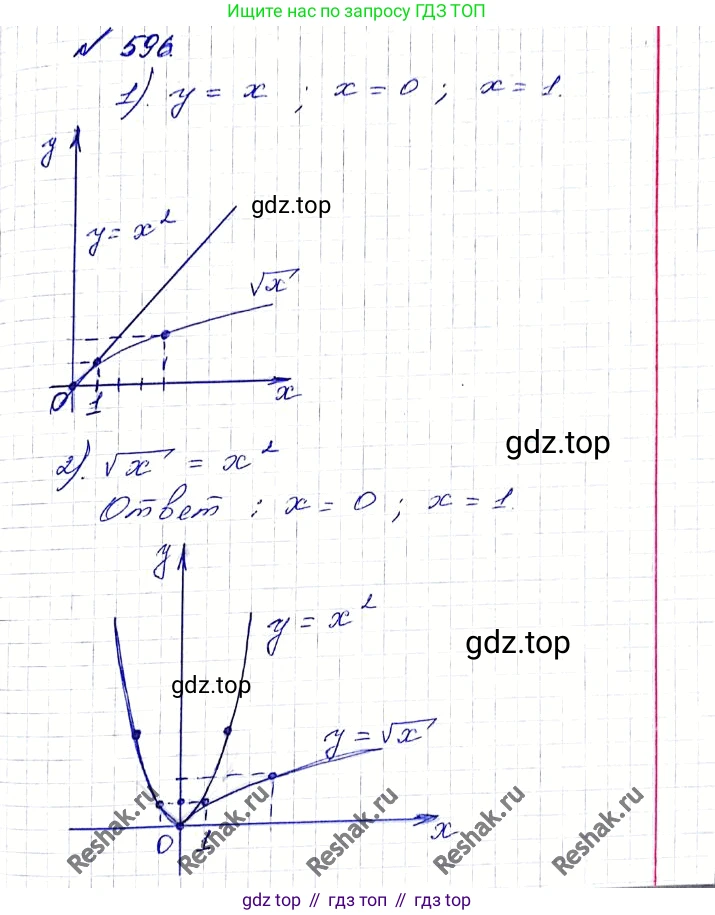 Ищите нас по запросу ГДЗ ТОП
№ 596.
1). y = x ; x = 0 ; x = 1.
y
gdz.top
y = x²
√x
0 1 x
gdz.top
2). √x = x²
Ответ : x = 0 ; x = 1.
y
y = x²
gdz.top
gdz.top
y = √x
0 1 x
Reshak.ru Reshak.ru Reshak.ru Reshak.ru Reshak.ru
gdz top // гдз топ // gdz.top